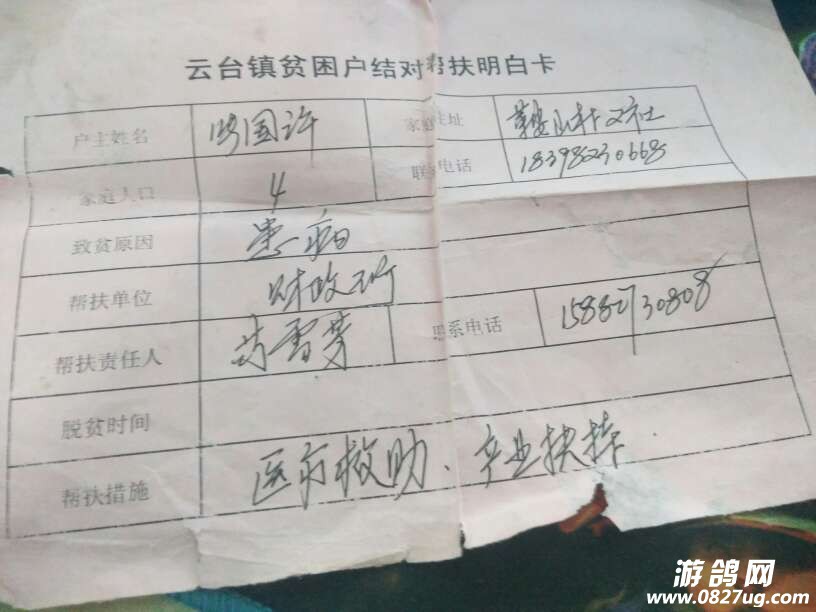 云台镇贫困户结对帮扶明白卡
户主姓名 国许 家庭住址 鞍山村 社
家庭人口 4 联系电话 18398230668
致贫原因 患病
帮扶单位 财政所
帮扶责任人 雪芳 联系电话 15882730808
脱贫时间
帮扶措施 医疗救助、产业扶持.
游鸽网
www.0827ug.com